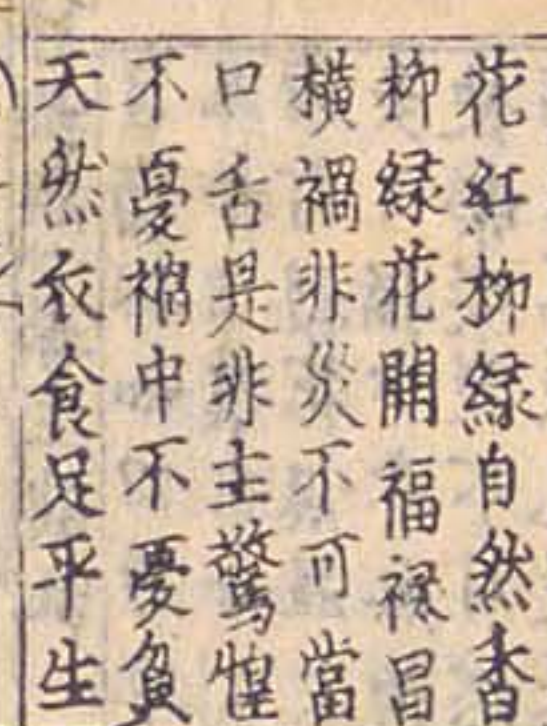 花紅柳緑自然香
柳緑花開福祿昌
橫禍非災不可當
口舌是非主驚惶
不憂禍中不憂貧
天然衣食足平生